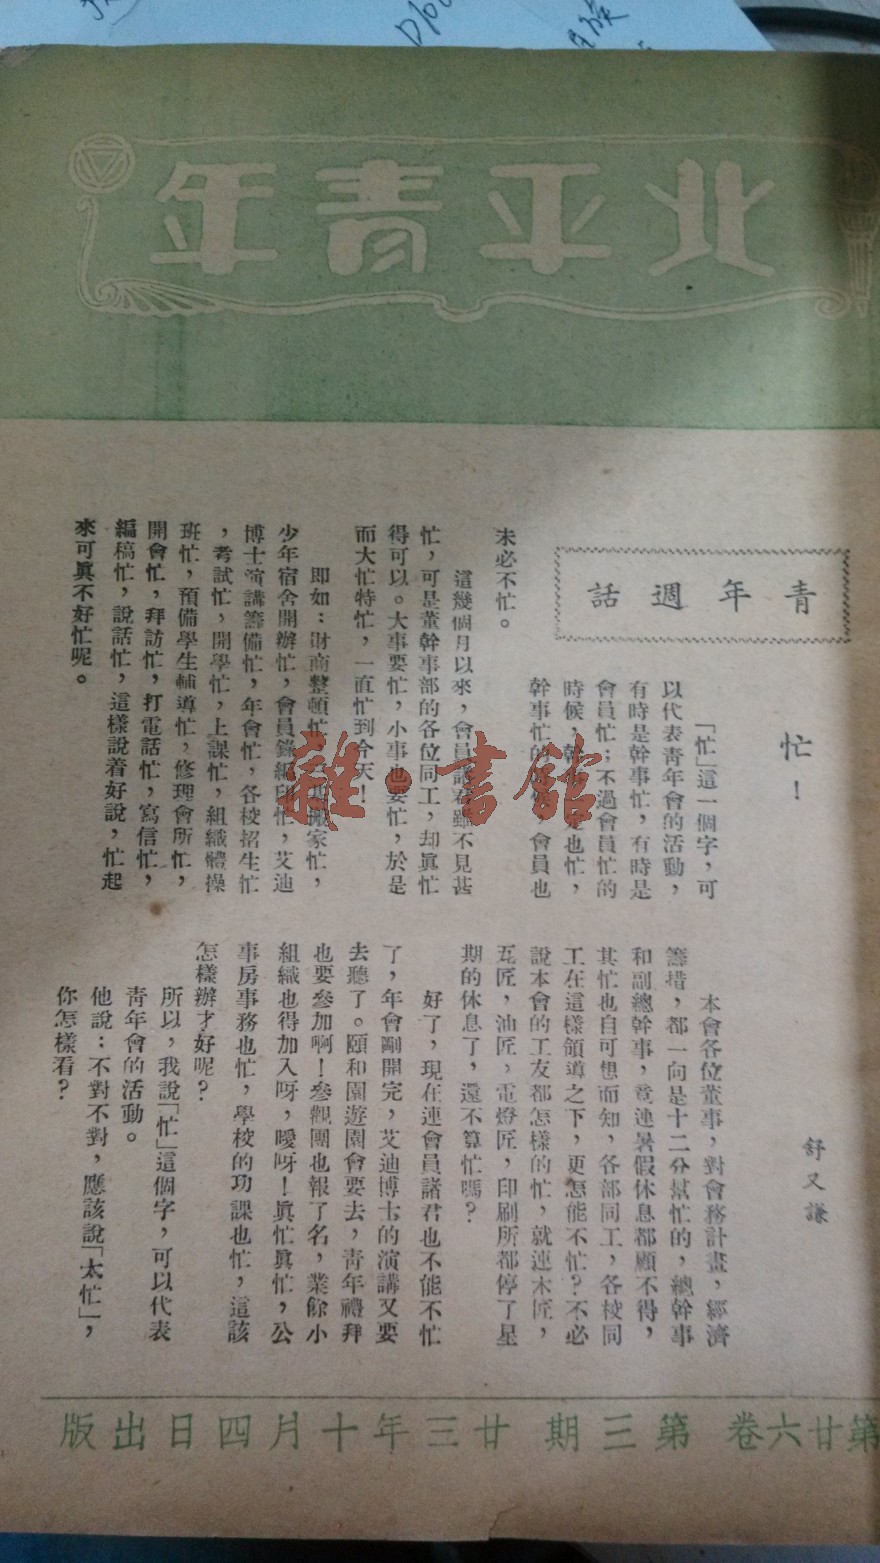 北平青年
青年週話
忙！
舒又謙
「忙」這一個字，可
以代表靑年會的活動，
有時是幹事忙，有時是
會員忙；不過會員忙的
時候，幹事也忙，
幹事忙的，會員也
未必不忙。
這幾個月以來，會員諸君雖不見甚
忙，可是董幹事部的各位同工，却眞忙
得可以。大事要忙，小事也要忙，於是
而大忙特忙，一直忙到今天！
即如：財商整頓忙，搬家忙，
少年宿舍開辦忙，會員錄編印忙，艾迪
博士演講籌備忙，年會忙，各校招生忙
，考試忙，開學忙，上課忙，組織體操
班忙，預備學生輔導忙，修理會所忙，
開會忙，拜訪忙，打電話忙，寫信忙，
編稿忙，說話忙，這樣說着好說，忙起
來可眞不好忙呢。
本會各位董事，對會務計畫，經濟
籌措，都一向是十二分幫忙的，總幹事
和副總幹事，竟連暑假休息都顧不得，
其忙也自可想而知，各部同工，各校同
工在這樣領導之下，更怎能不忙？不必
說本會的工友都怎樣的忙，就連木匠，
瓦匠，油匠，電燈匠，印刷所都停了星
期的休息了，還不算忙嗎？
好了，現在連會員諸君也不能不忙
了，年會剛開完，艾迪博士的演講又要
去聽了。頤和園遊園會要去，靑年禮拜
也要參加啊！參觀團也報了名，業餘小
組織也得加入呀，噯呀！眞忙眞忙，公
事房事務也忙，學校的功課也忙，這該
怎樣辦才好呢？
所以，我說「忙」這個字，可以代表
靑年會的活動。
他說：不對不對，應該說「太忙」，
你怎樣看？
第廿六卷 第三期 廿三年十月四日出版
雜·書館